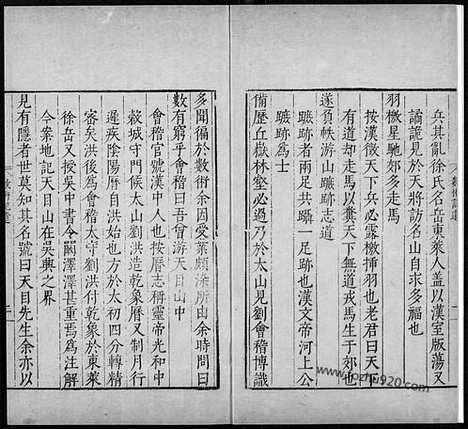 兵其亂徐氏名岳東萊人蓋以漢室版蕩又
譎詭見於天將訪名山自求多福也
羽檄星馳郊多走馬
按漢徵天下兵必露檄揷羽也老君曰天下
有道却走馬以糞天下無道戎馬生于郊
遂負帙游山蹠跡志道
蹠跡者兩足共躡一足跡也漢文帝河上公
蹠跡爲士
備歴丘嶽林壑必過乃於太山見劉會稽博識
多聞偏於數術余因受業頗染所由余時問曰
數有窮乎會稽曰吾曾游天目山中
會稽官號漢中人也按曆志稱靈帝光和中
穀城守門候太山劉洪造乾象曆又制月行
遲疾陰陽曆自洪始也方於太初四分轉精
密矣洪後爲會稽太守劉洪付乾象於東萊
徐岳又授吳中書令闞澤澤甚重焉爲注解
今案地記天目山在吳興之界
見有隱者世莫知其名號曰天目先生余亦以
數術記遺
二
www.fozhu920.com